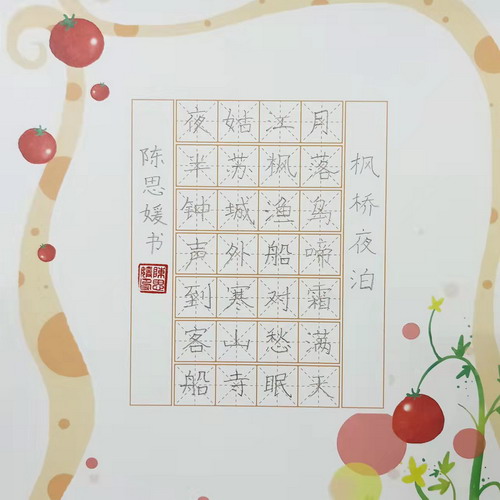 枫桥夜泊
月落乌啼霜满天
江枫渔船对愁眠
姑苏城外寒山寺
夜半钟声到客船
陈思媛书